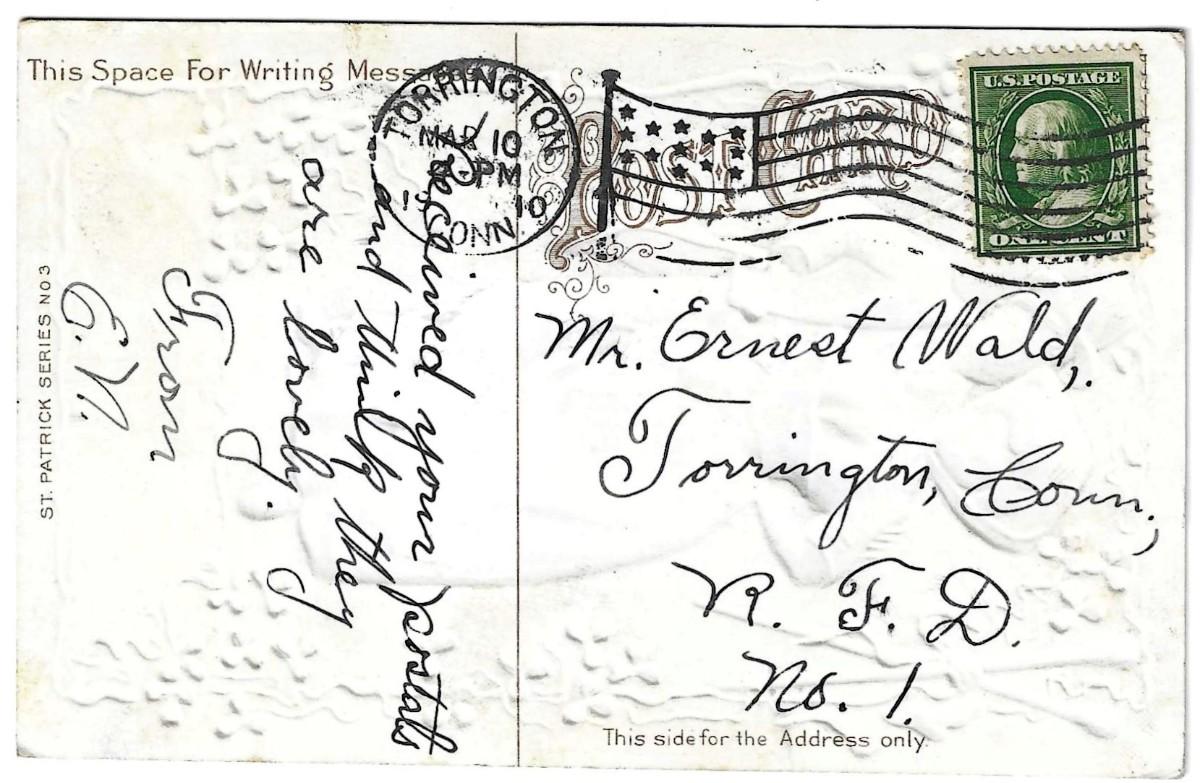 This Space For Writing Messages
TORRINGTON
MAR 10
PM
10
CONN
POST CARD
U.S. POSTAGE
ONE CENT
Received your postals
and think they
are lovely.
From
E. N.
Mr. Ernest Wald,
Torrington, Conn.,
R. F. D.
No. 1.
ST. PATRICK SERIES NO 3
This side for the Address only.